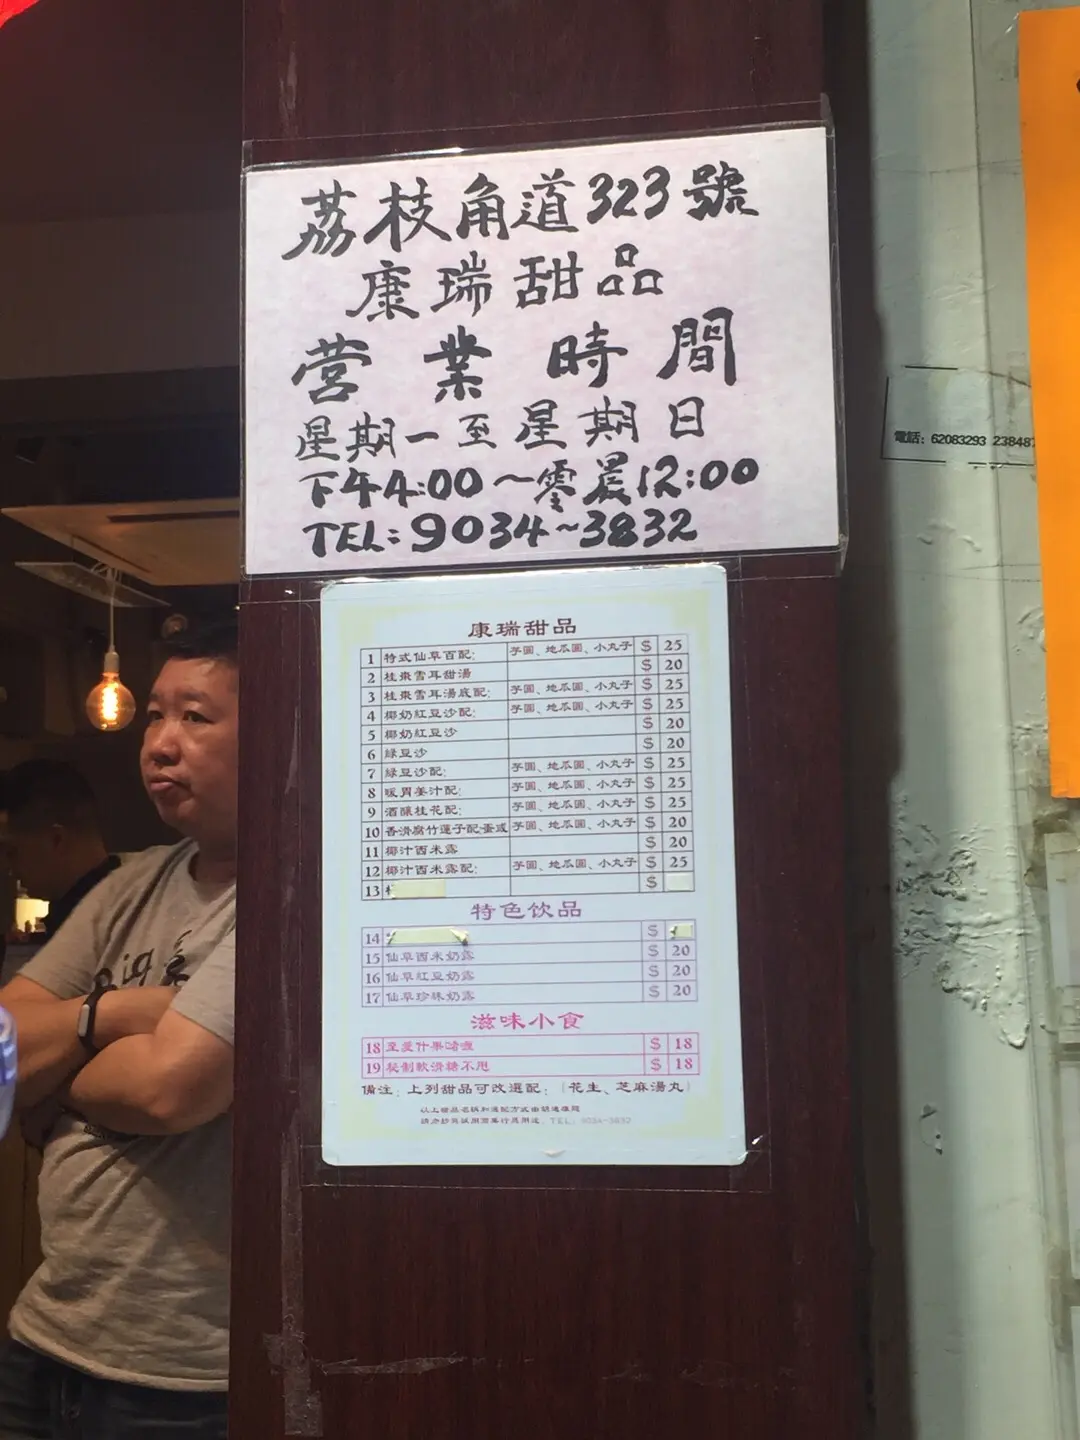 荔枝角道323號
康瑞甜品
营業時間
星期一至星期日
下午4:00～零晨12:00
TEL:9034~3832
電話: 62083293 238487
康瑞甜品
1 特式仙草百配: 芋圓、地瓜圓、小丸子 $ 25
2 桂棗雪耳甜湯 $ 20
3 桂棗雪耳湯底配: 芋圓、地瓜圓、小丸子 $ 25
4 椰奶紅豆沙配: 芋圓、地瓜圓、小丸子 $ 25
5 椰奶紅豆沙 $ 20
6 綠豆沙 $ 20
7 綠豆沙配: 芋圓、地瓜圓、小丸子 $ 25
8 暖胃姜汁配: 芋圓、地瓜圓、小丸子 $ 25
9 酒釀桂花配: 芋圓、地瓜圓、小丸子 $ 25
10 香滑腐竹蓮子配蛋或 芋圓、地瓜圓、小丸子 $ 20
11 椰汁西米露 $ 20
12 椰汁西米露配: 芋圓、地瓜圓、小丸子 $ 25
13 $
特色饮品
14 $
15 仙草西米奶露 $ 20
16 仙草紅豆奶露 $ 20
17 仙草珍珠奶露 $ 20
滋味小食
18 至愛什果啫喱 $ 18
19 秘制軟滑糖不甩 $ 18
備注: 上列甜品可改選配: (花生、芝麻湯丸)
以上甜品名稱和選配方式
TEL: 9034-3832